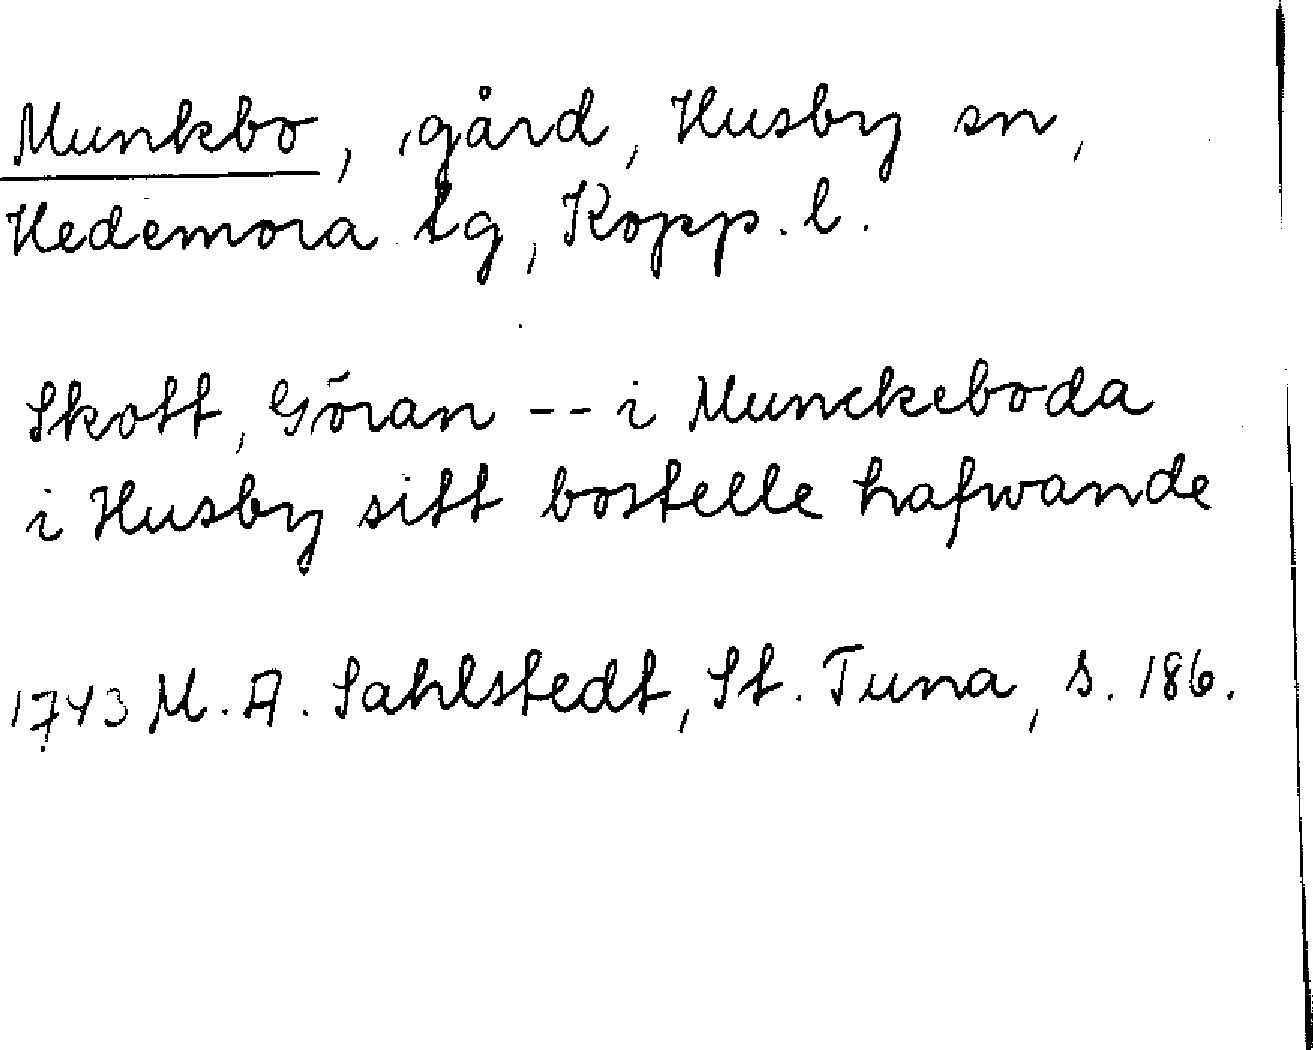 Munkbo, gård, Husby sn,
Hedemora tg, Kopp. l.
Skott, Göran -- i Munckeboda
i Husby sitt bostelle hafwande
1743 M. A. Sahlstedt, St. Tuna, s. 186.